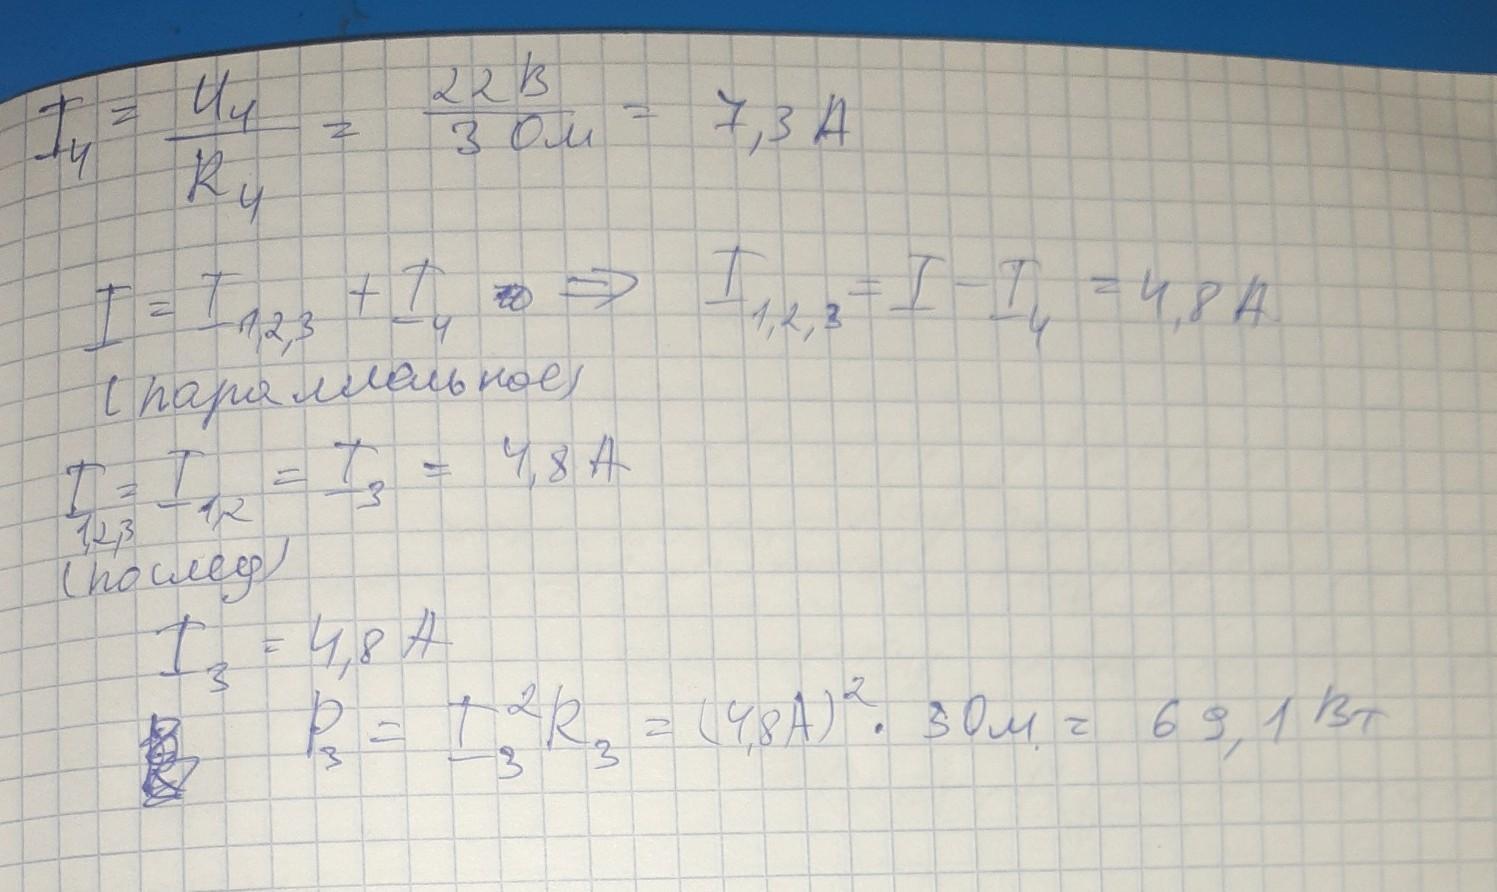 I₄ = U₄/R₄ = 22 В/3 Ом = 7,3 А
I = I₁,₂,₃ + I₄ ⇒ I₁,₂,₃ = I - I₄ = 4,8 А
(параллельное)
I₁,₂,₃ = I₁,₂ = I₃ = 4,8 А
(послед)
I₃ = 4,8 А
P₃ = I₃²R₃ = (4,8А)² · 3 Ом = 69,1 Вт